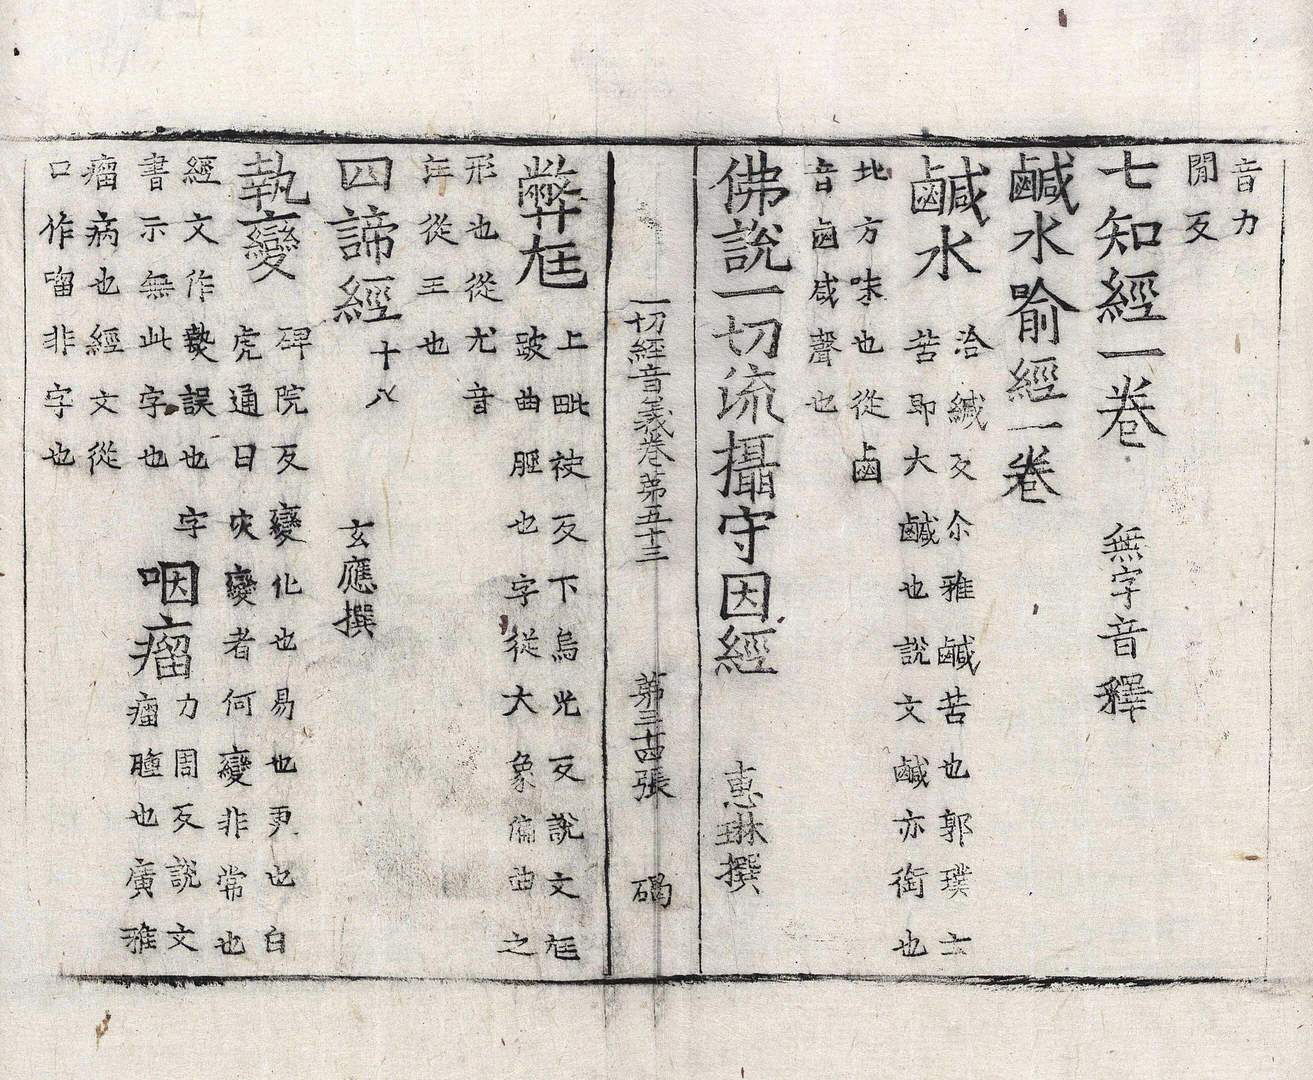 音力
閒反
七知經一卷 無字音釋
鹹水喻經一卷
鹹水 洽緘反尒雅鹹苦也郭璞云
苦即大鹹也說文鹹亦銜也
北方味也從鹵
音鹵咸聲也
佛說一切流攝守因經 惠琳撰
一切經音義卷苐五十三 苐三十四張 碣
弊尫 上毗袂反下烏光反說文尫
跛曲脛也字從大象偏曲之
形也從尤音
汪從王也
四諦經 十八 玄應撰
執變 碑院反變化也易也更也白
虎通曰灾變者何變非常也
經文作㪍誤也字
書示無此字也
咽瘤 力周反說文
瘤腫也廣雅
瘤病也經文從
口作嚠非字也